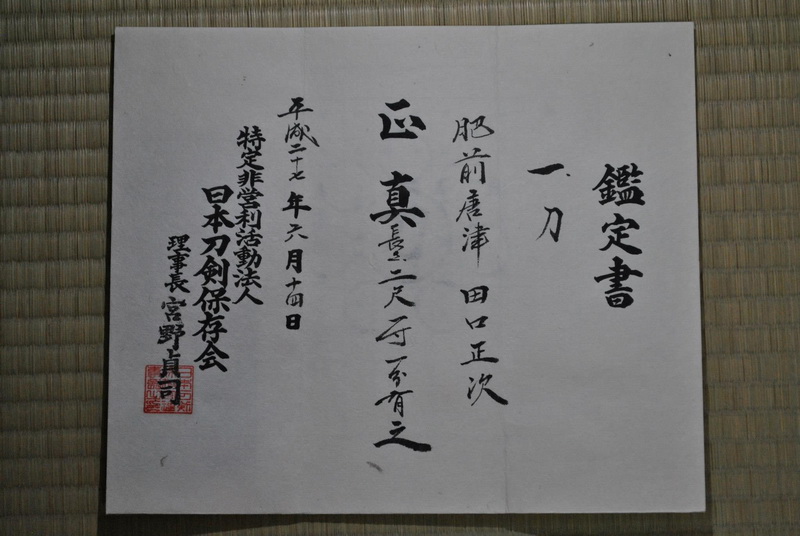 鑑定書
一、刀
肥前唐津 田口正次
正真 長二尺一寸一分有之
平成二十七年六月十四日
特定非営利活動法人
日本刀剣保存会
理事長 宮野貞司